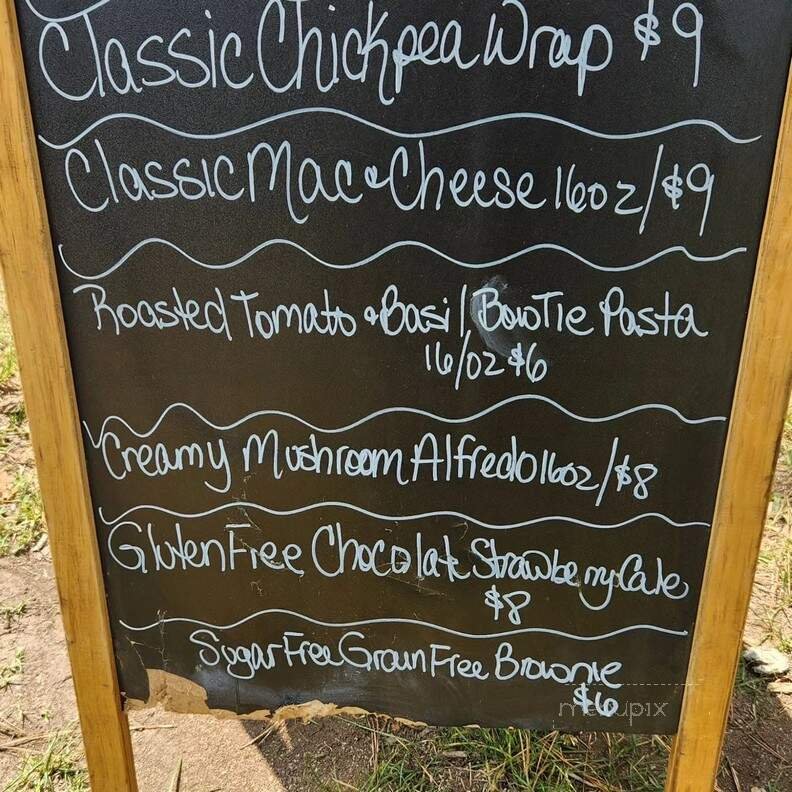 Classic Chickpea Wrap $9
Classic Mac & Cheese 16oz/$9
Roasted Tomato & Basil BowTie Pasta
16/oz $6
Creamy Mushroom Alfredo 16oz/$8
Gluten Free Chocolate Strawberry Cake
$8
Sugar Free Grain Free Brownie
$6
menupix